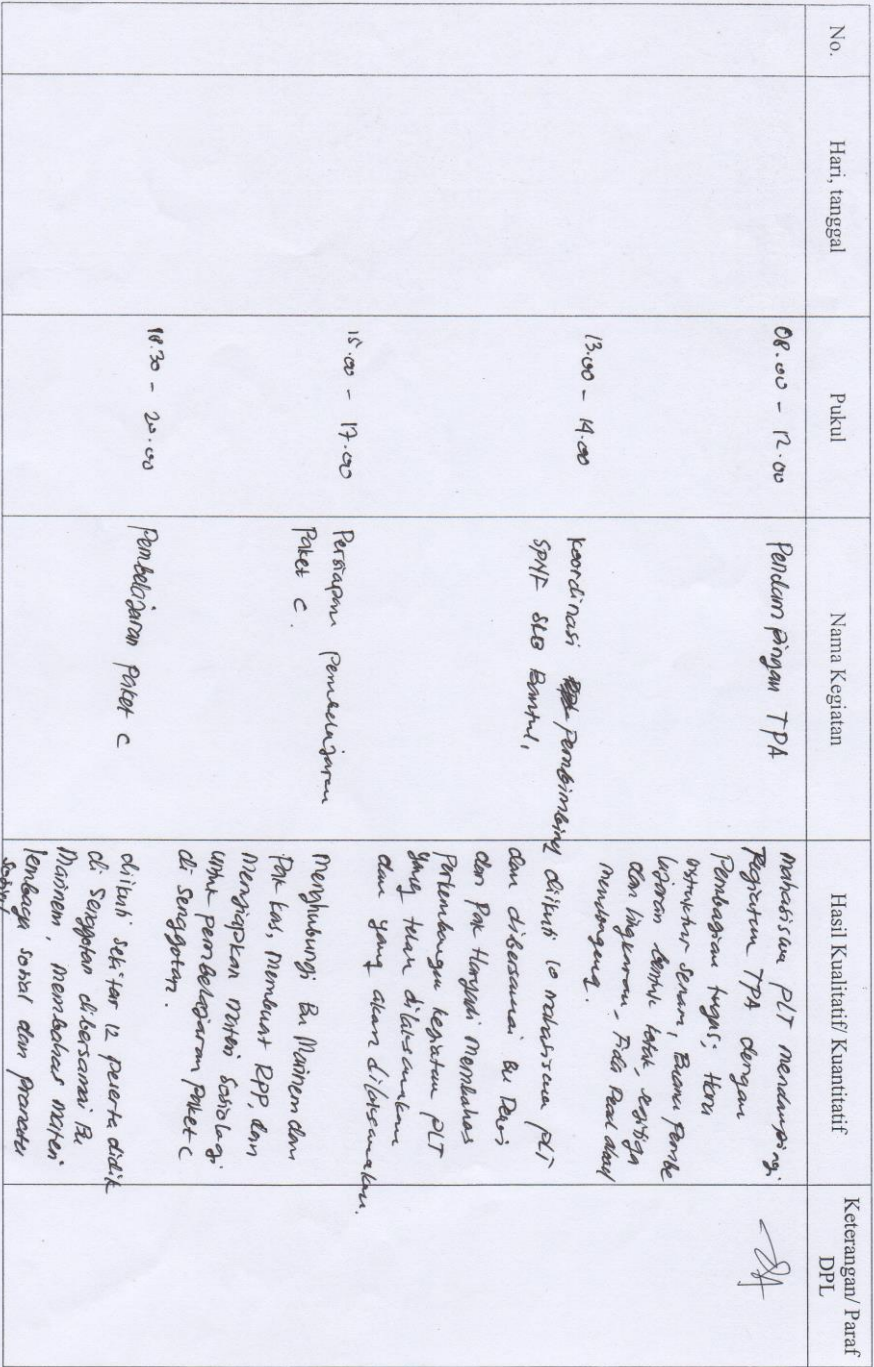 No.
Hari, tanggal
Pukul
Nama Kegiatan
Hasil Kualitatif/ Kuantitatif
Keterangan/ Paraf
DPL
08.00 - 12.00
Pendampingan TPA
mahasiswa PLT mendampingi
kegiatan TPA dengan
Pembagian tugas; Hera
instruktur senam, Buana pembe
lajaran bentuk kotak, segitiga
dan lingkaran -
13.00 - 14.00
koordinasi Pembimbing
SPNF SKB Bantul,
diikuti 10 mahasiswa PLT
dan dibersamai Bu Dewi
dan Pak Haryadi membahas
Perkembangan kegiatan PLT
yang telah dilaksanakan
dan yang akan dilaksanakan.
15.00 - 17.00
Persiapan pembelajaran
Paket C.
menghubungi Bu Mainem dan
Pak kas, membuat RPP, dan
menyiapkan materi Sosiologi
untuk pembelajaran Paket C
di senggotan.
18.30 - 20.00
Pembelajaran Paket C
diikuti sekitar 12 peserta didik
di Senggotan dibersamai Bu
Mainem, membahas materi
lembaga sosial dan pranata
sosial